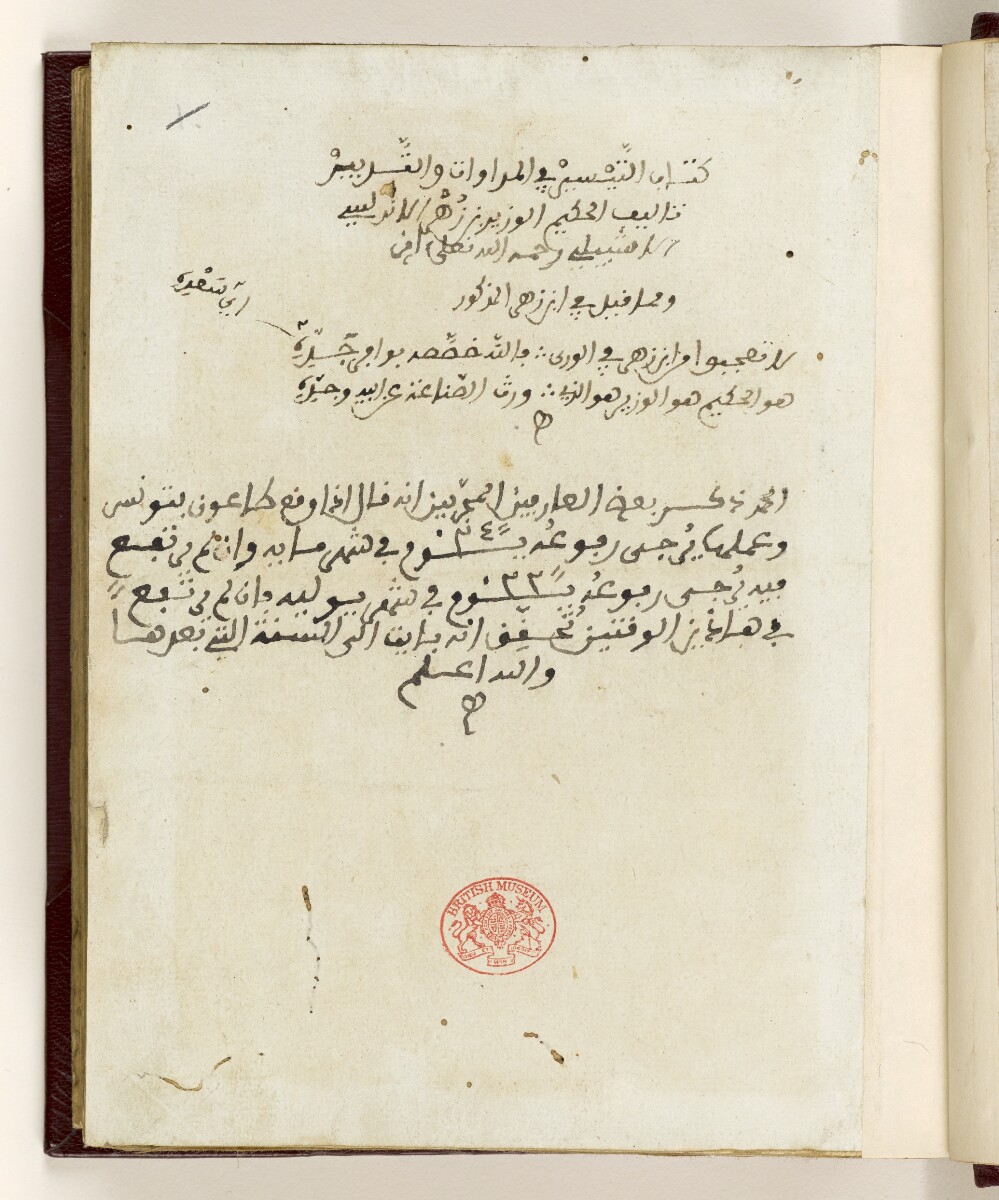 كتاب التَّيْسِيرْ في المداوات والتَّدبيرْ
تاليف الحكيم الوزير بن زُهْر الاندلسي
الاشبيلي رحمه الله تعلى آمين
ومما قيل في ابن زهر المذكور
اي سَعْدِهِ
لا تعجبوا من ابن زهر في الورى ∴ فالله خصّصه بوافر جَدِّهِ
هو الحكيم هو الوزير هو الذي ∴ ورث الصّناعة عن ابيه وجدّه
الحمد لله ذكر بعض العارفين المجرّبين انه قال اذا وقع طاعون بتونس
وعملها يُرجى رفوعُه يـ٢٤ـوم في شهر مايه وان لم يرتفع
فيه يُرجى رفوعُه يـ٢٣ـوم في شهر يوليه وان لم يرتفع
في هاذين الوقتين تُحقِّق انه بايت الى السّنة التي بعدها
والله اعلم
BRITISH MUSEUM